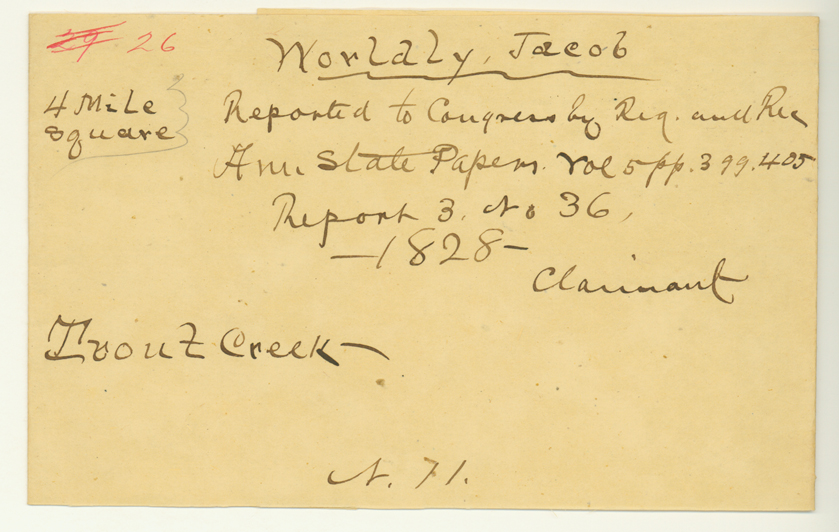 29 26
Worldly, Jacob
4 Mile
square
Reported to Congress by Reg. and Rec
Am. State Papers. Vol 5 pp. 399.405
Report 3. No 36,
—1828—
Claimant
Trout Creek—
N. 71.